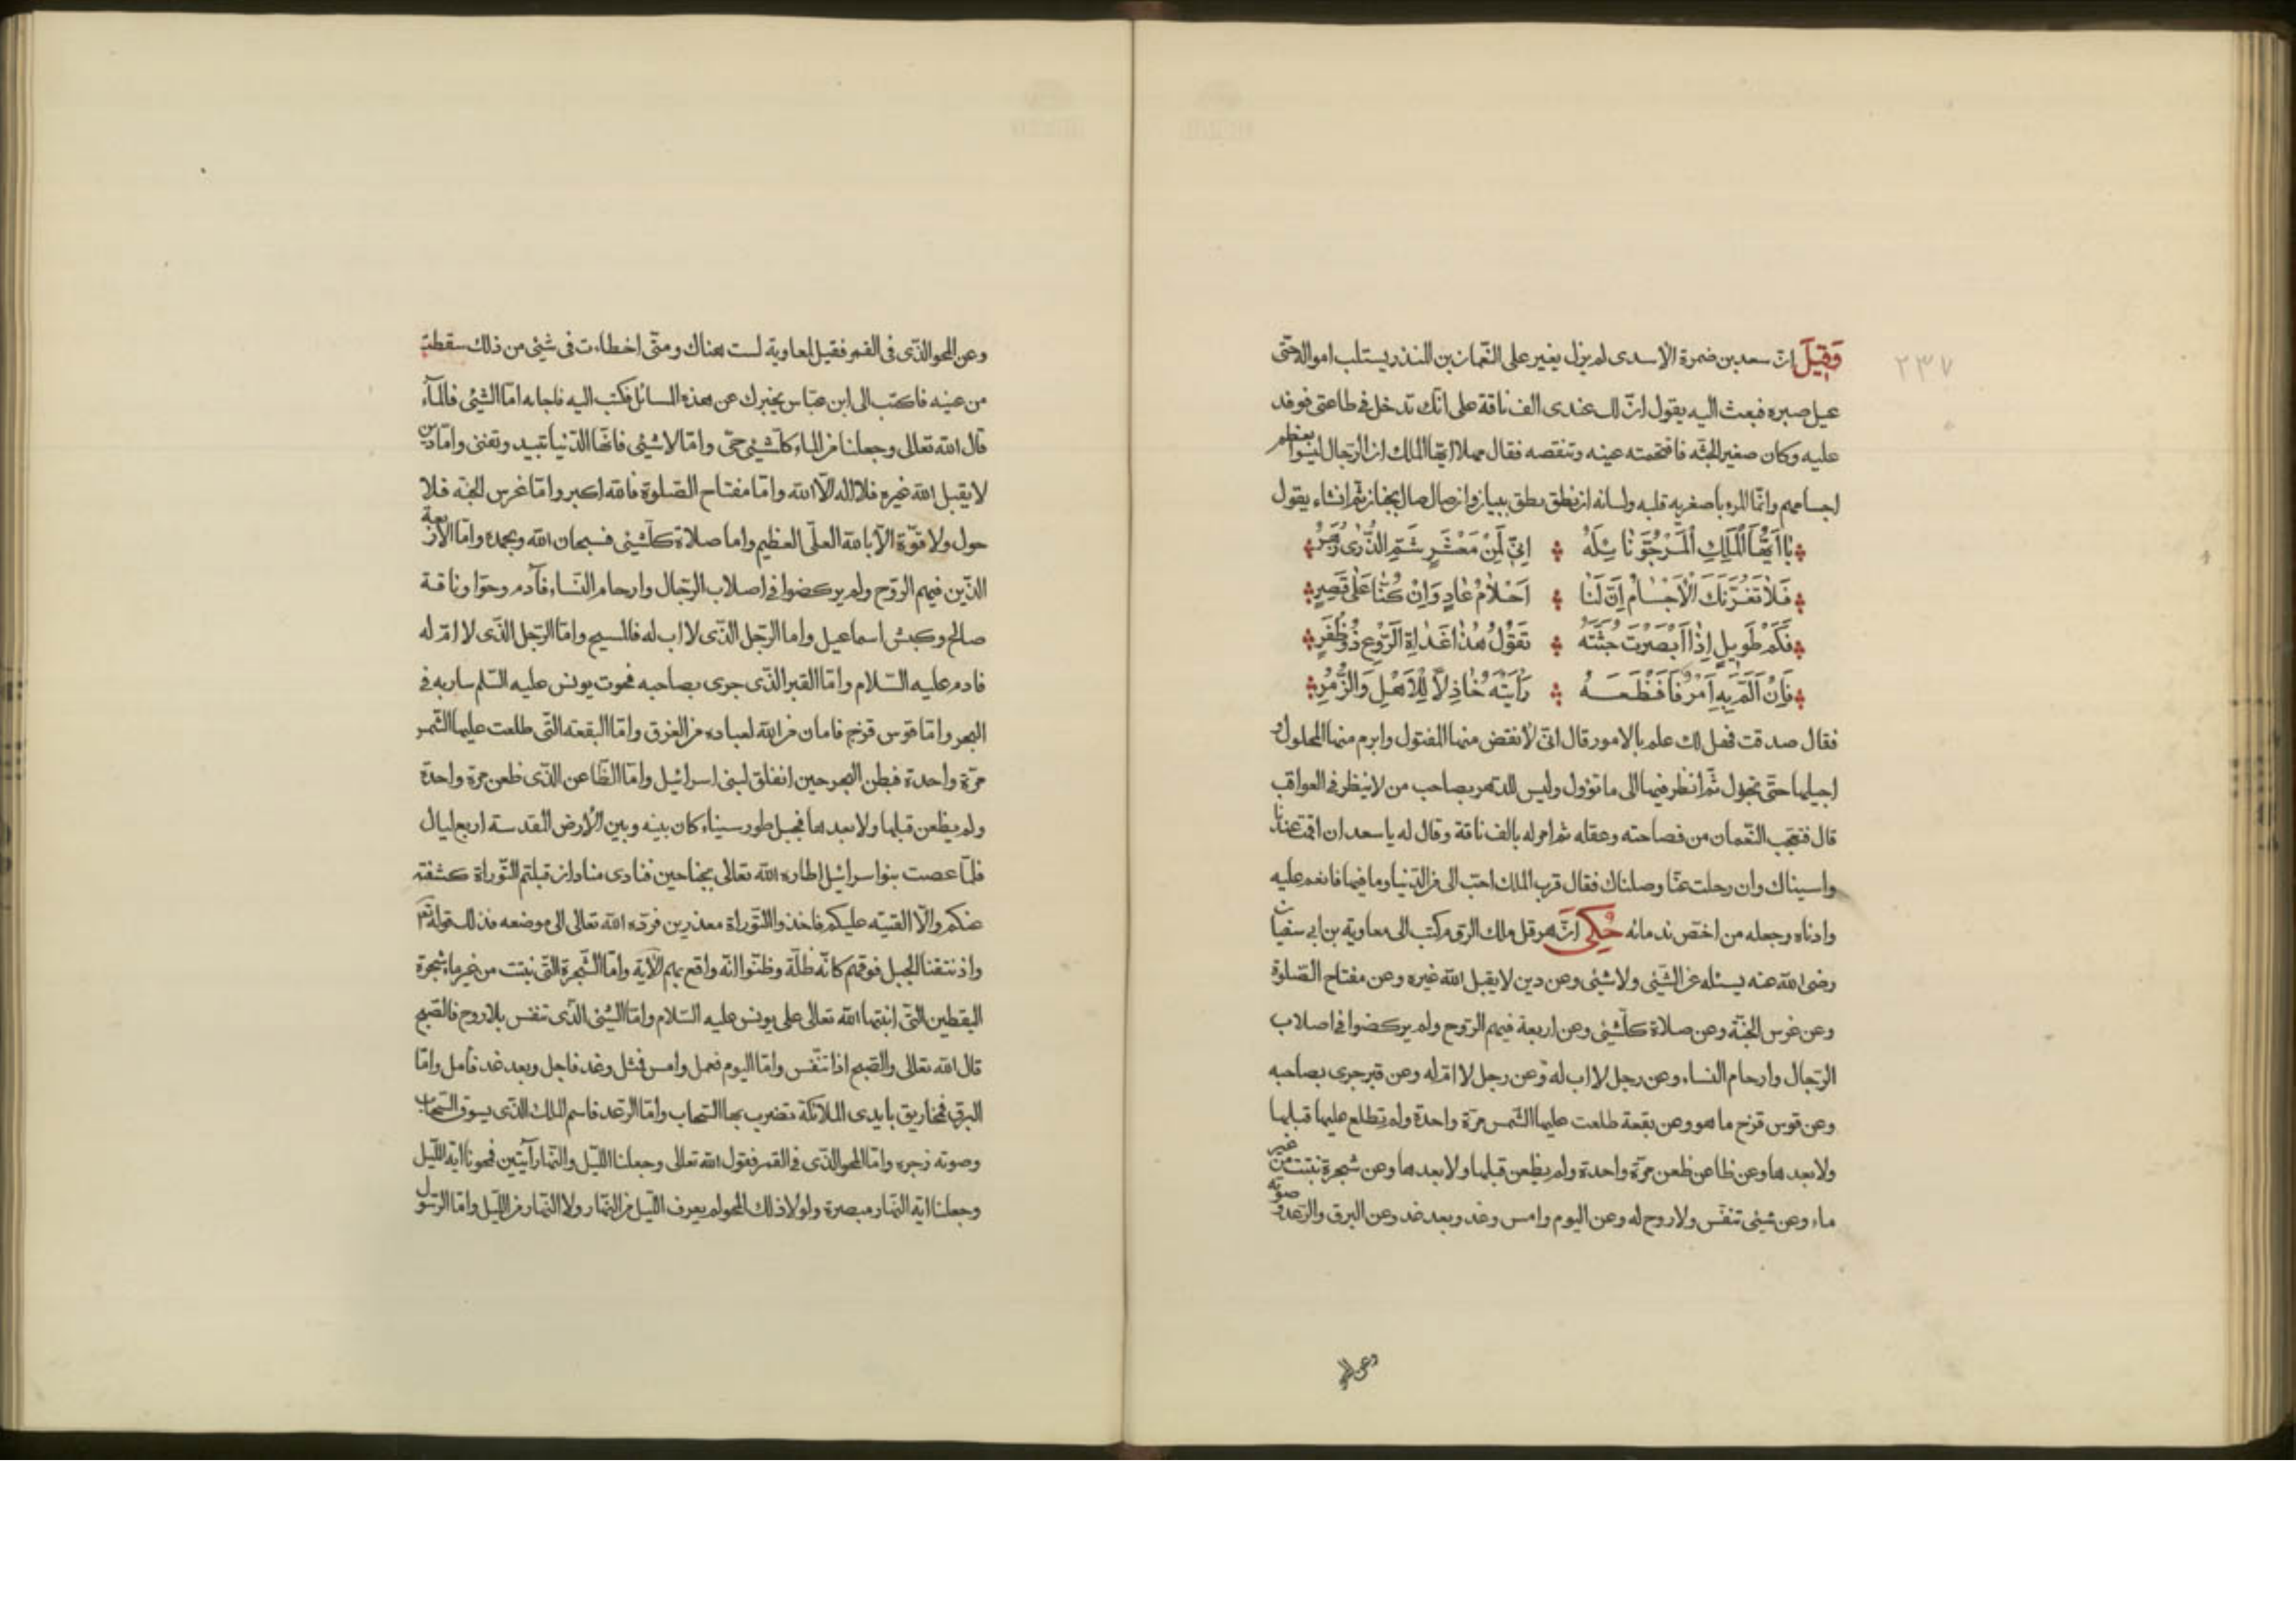 ٢٣٧
وَقِيلَ إنّ سعد بن ضمرة الأسدى لم يزل يغير على النّعمان بن المنذر يستلب امواله حتّى
عيل صبره فبعث اليه يقول انّ لك عندى الف ناقة على انّك تدخل فى طاعتى فوفد
عليه وكان صغير الجثّه فاقتحمته عينه وتنقصه فقال مهلا ايّها الملك ان الرّجال ليسوا بعظم
اجسامهم وانّما المرء بأصغريه قلبه ولسانه ان نطق نطق ببيان وان صال صال بجنان ثمّ انشاء يقول
يَا اَيُّهَا الْمَلِكِ الْمَرْجُوّ نَائِلَهُ اِنِّى لَمِنْ مَعْشَرٍ شَمِّ الذُّرٰى زُهُرِ
فَلَا تَغُرَّنَكَ الْاَجْسَامُ اِنَّ لَنَا اَحْلَامُ عَادٍ وَاِنْ كُنَّا عَلٰى قَصِرٍ
فَكَمْ طَوِيلٍ اِذَا اَبْصَرْتَ جُثَّتَهُ تَقُوْلُ هٰذَا غَدَاةَ الرَّوْعِ ذُوْ ظَفَرٍ
فَاِنْ اَلَمَّ بِهِ اَمْرٌ فَاَفْظَعَهُ رَاَيْتَهُ خَاذِلًا لِلْاَهْلِ وَالزُّمُرِ
فقال صدقت فهل لك علم بالامور قال انّى لأنقض منها المفتول وابرم منها المحلول و
اجيلها حتّى تجول ثمّ انظر فيها الى ما تؤول وليس للدّهر بصاحب من لا ينظر فى العواقب
قال فتعجّب النّعمان من فصاحته وعقله ثم امر له بالف ناقة وقال له يا سعد ان اقمت عندنا
واسيناك وان رحلت عنّا وصلناك فقال قرب الملك احبّ الى من الدّنيا وما فيها فانعم عليه
وادناه وجعله من اخصّ ندمائه حُكِى انّ هرقل ملك الروم كتب الى معاوية بن ابى سفيان
رضى الله عنه يسئله عن الشّيئى ولا شيئى وعن دين لا يقبل الله غيره وعن مفتاح الصّلوة
وعن غرس الجنّة وعن صلاة كلّ شيئى وعن اربعة فيهم الرّوح ولم يركضوا فى اصلاب
الرّجال وارحام النساء وعن رجل لا اب له وعن رجل لا امّ له وعن قبر جرى بصاحبه
وعن قوس قزح ما هو وعن بقعة طلعت عليها الشّمس مرّة واحدة ولم تطلع عليها قبلها
ولا بعدها وعن ظاعن ظعن مرّة واحدة ولم يظعن قبلها ولا بعدها وعن شجرة نبتت من غير
ماء وعن شيئى تنفّس ولا روح له وعن اليوم وامس وغد وبعد غد وعن البرق والرّعد و صوته
وعن المحو
وعن المحو الذّى فى القمر فقيل لمعاوية لست هناك ومتّى اخطاءت فى شيئى من ذلك سقطت
من عينه فاكتب الى ابن عبّاس يخبرك عن هذه المسائل فكتب اليه فاجابه امّا الشّيئى فالمآء
قال الله تعالى وجعلنا من الماء كلّ شيئى حىّ وامّا لا شيئى فانّها الدّنيا تبيد وتفنى وامّا دين
لا يقبل الله غيره فلا اله الّا الله وامّا مفتاح الصّلوة فالله اكبر وامّا غرس الجنّه فلا
حول ولا قوّة الّا بالله العلىّ العظيم واما صلاة كلّ شيئى فسبحان الله وبحمده وامّا الأربعة
الذّين فيهم الرّوح ولم يركضوا فى اصلاب الرّجال وارحام النّساء فآدم وحوّا وناقة
صالح وكبش اسماعيل واما الرّجل الذّى لا اب له فالمسيح وامّا الرّجل الذّى لا امّ له
فادم عليه السّلام وامّا القبر الذّى جرى بصاحبه فحوت يونس عليه السّلم سار به فى
البحر وامّا قوس قزح فامان من الله لعباده من الغرق وامّا البقعة التّى طلعت عليها الشّمس
مرّة واحدة فبطن البحر حين انفلق لبنى اسرائيل وامّا الظّاعن الذّى ظعن مرة واحدة
ولم يظعن قبلها ولا بعدها فجبل طور سيناء كان بينه وبين الأرض المقدسة اربع ليال
فلمّا عصت بنوا اسرائيل اطاره الله تعالى بجناحين فنادى مناد ان قبلتم التّوراة كشفته
عنكم والّا القيته عليكم فاخذوا التّوراة معذرين فردّه الله تعالى الى موضعه فذلك قوله تعا
واذ نتقنا الجبل فوقهم كانّه ظلّة وظنّوا انّه واقع بهم الأية وامّا الشّجرة التّى نبتت من غير ماء شجرة
اليقطين التّى انبتها الله تعالى على يونس عليه السّلام وامّا الشّيئى الذّى تنفس بلا روح فالصّبح
قال الله تعالى والصّبح اذا تنّفس وامّا اليوم فعمل وامس فمثل وغد فاجل وبعد غد فأمل وامّا
البرق فمخاريق بايدى الملائكة تضرب بها السّحاب وامّا الرّعد فاسم الملك الذّى يسوق السّحاب
وصوته زجره وامّا المحو الذّى فى القمر فقول الله تعالى وجعلنا اللّيل والنّهار آيتين فمحونا اية اللّيل
وجعلنا اية النّهار مبصرة ولولا ذلك المحو لم يعرف اللّيل من النّهار ولا النّهار من اللّيل وامّا الرّسول